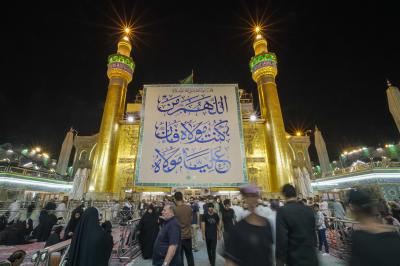 اللهم من
كنت مولاه فإن
عليا مولاه